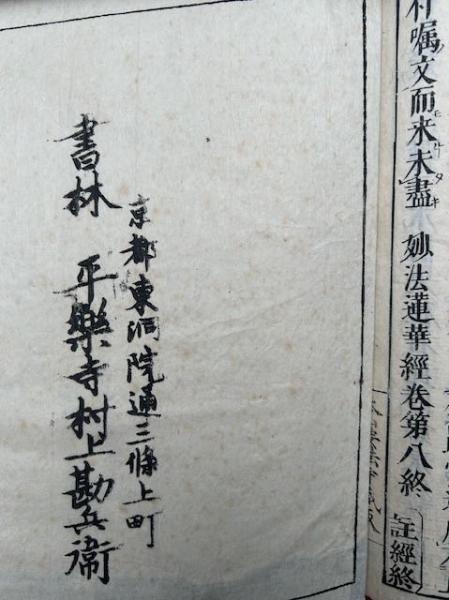 嘱文而来未盡 妙法蓮華經卷第八終 註經終
京都東洞院通三條上町
書林 平樂寺村上勘兵衛